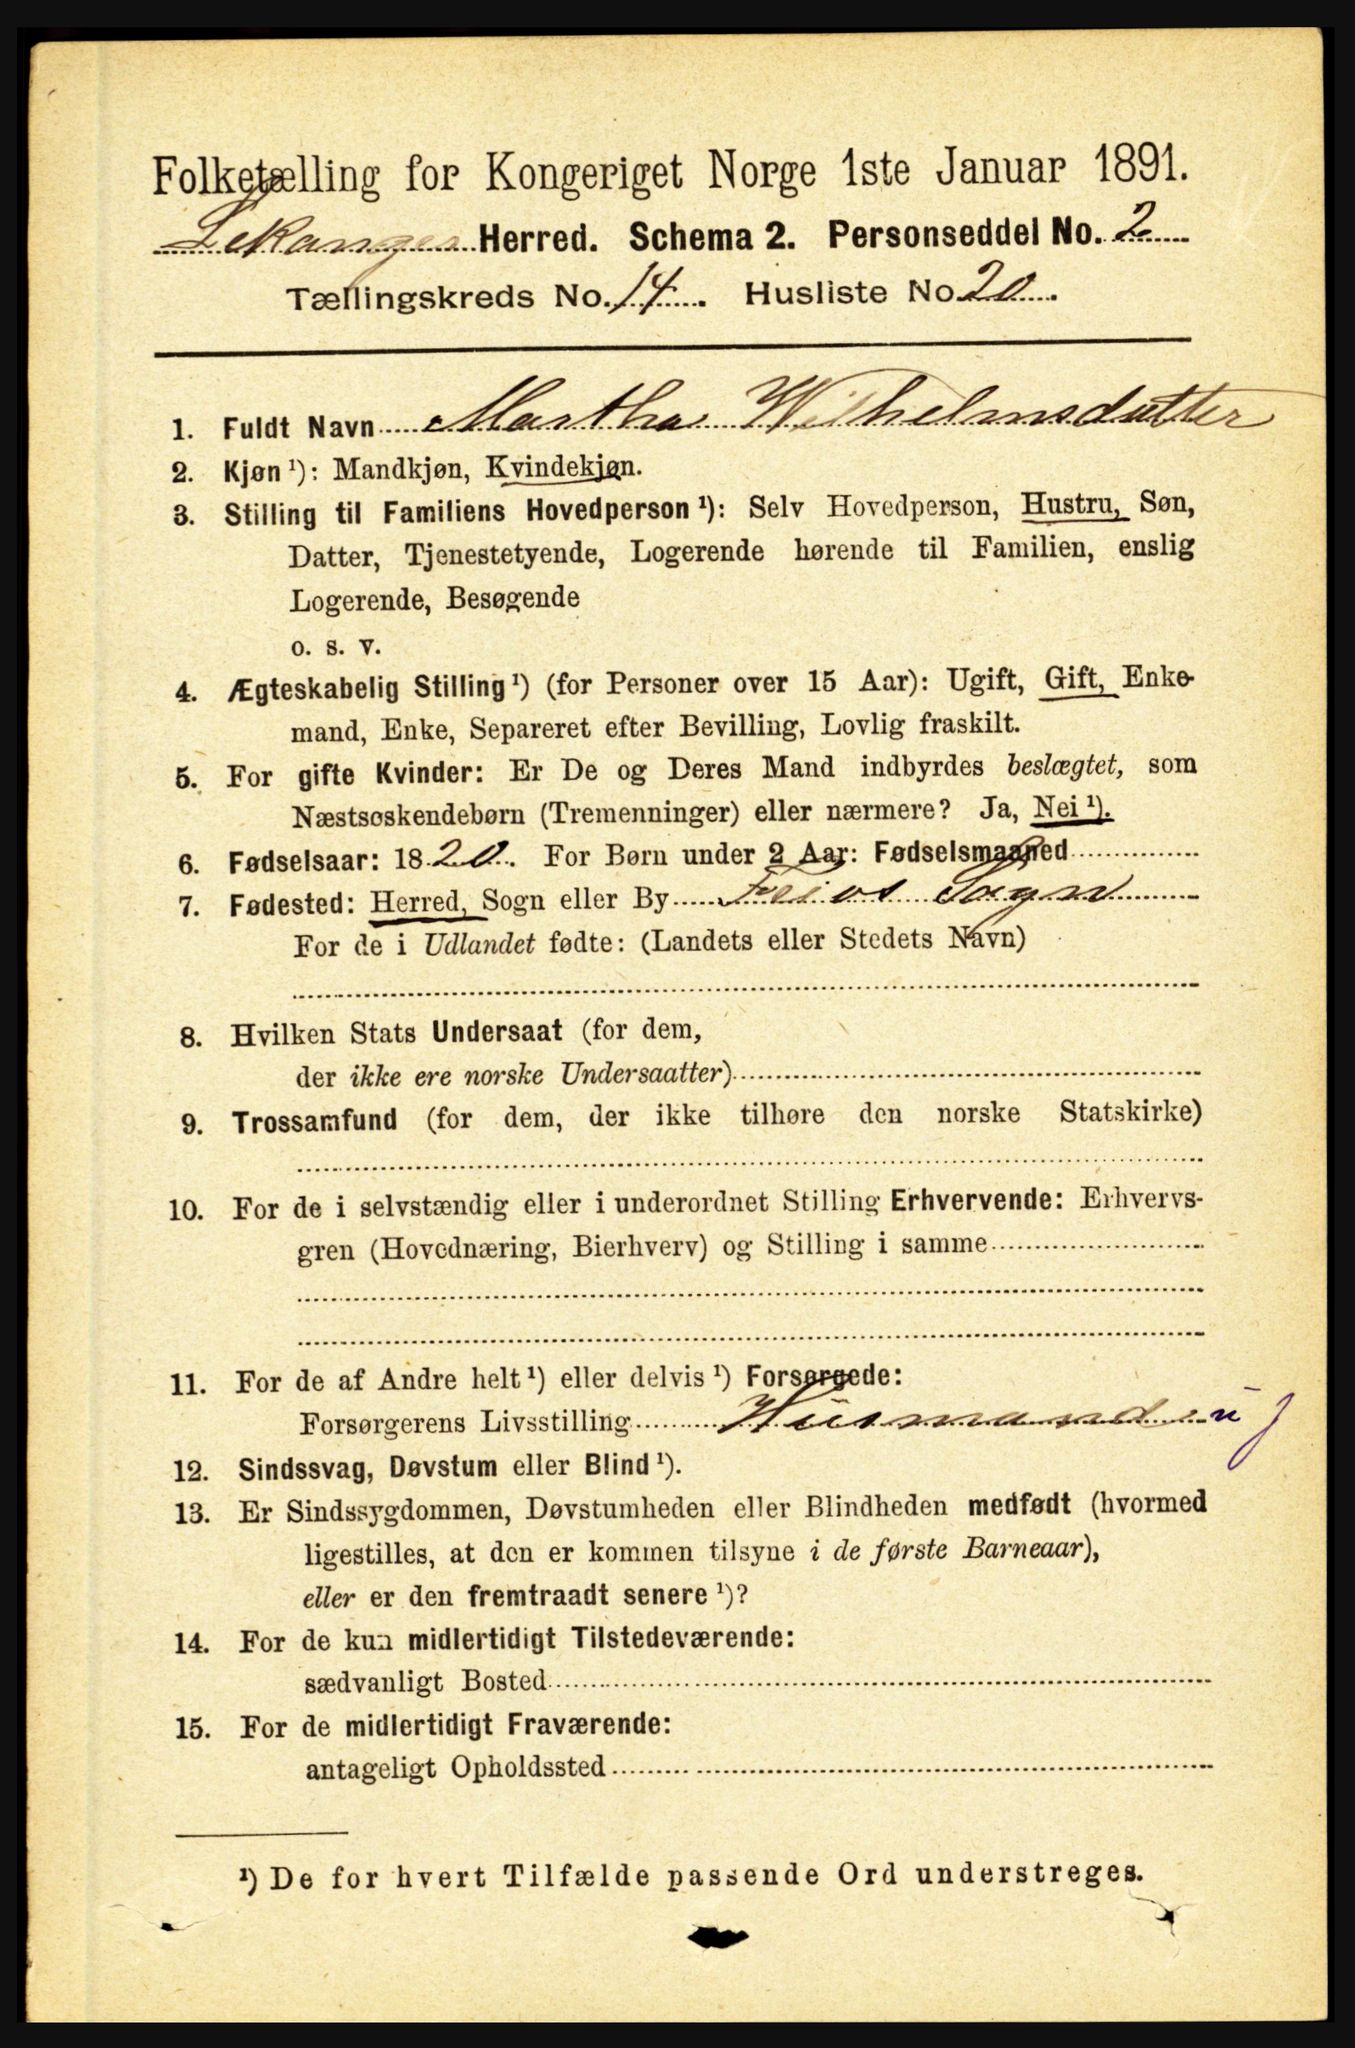 Folketælling for Kongeriget Norge 1ste Januar 1891.
Lekanger Herred. Schema 2. Personseddel No. 2
Tællingskreds No. 14. Husliste No 20.
1. Fuldt Navn Martha Wilhelmsdatter
2. Kjøn ¹): Mandkjøn, Kvindekjøn.
3. Stilling til Familiens Hovedperson ¹): Selv Hovedperson, Hustru, Søn,
Datter, Tjenestetyende, Logerende hørende til Familien, enslig
Logerende, Besøgende
o. s. v.
4. Ægteskabelig Stilling ¹) (for Personer over 15 Aar): Ugift, Gift, Enke-
mand, Enke, Separeret efter Bevilling, Lovlig fraskilt.
5. For gifte Kvinder: Er De og Deres Mand indbyrdes beslægtet, som
Næstsøskendebørn (Tremenninger) eller nærmere? Ja, Nei ¹).
6. Fødselsaar: 1820. For Børn under 2 Aar: Fødselsmaaned
7. Fødested: Herred, Sogn eller By Feios Sogn
For de i Udlandet fødte: (Landets eller Stedets Navn)
8. Hvilken Stats Undersaat (for dem,
der ikke ere norske Undersaatter)
9. Trossamfund (for dem, der ikke tilhøre den norske Statskirke)
10. For de i selvstændig eller i underordnet Stilling Erhvervende: Erhvervs-
gren (Hovednæring, Bierhverv) og Stilling i samme
11. For de af Andre helt ¹) eller delvis ¹) Forsørgede:
Forsørgerens Livsstilling Husmand
12. Sindssvag, Døvstum eller Blind ¹).
13. Er Sindssygdommen, Døvstumheden eller Blindheden medfødt (hvormed
ligestilles, at den er kommen tilsyne i de første Barneaar),
eller er den fremtraadt senere ¹)?
14. For de kun midlertidigt Tilstedeværende:
sædvanligt Bosted
15. For de midlertidigt Fraværende:
antageligt Opholdssted
¹) De for hvert Tilfælde passende Ord understreges.